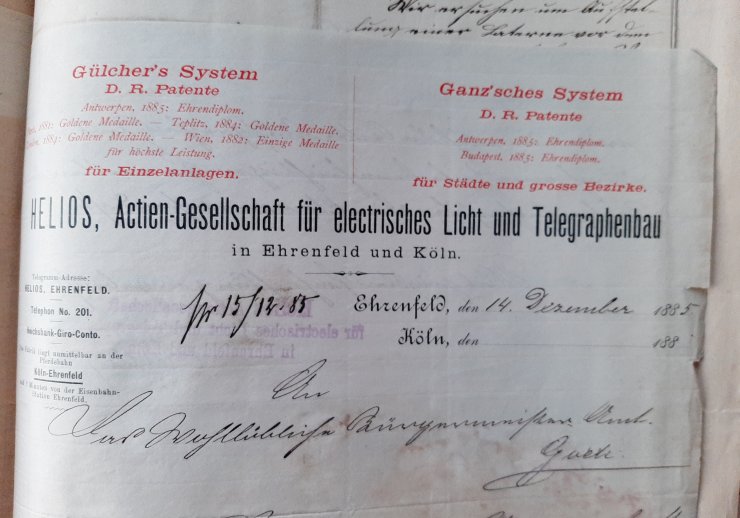 Wir ersuchen um Aufstel-
lung einer Laterne vor dem
Gülcher's System
D. R. Patente
Antwerpen, 1885: Ehrendiplom.
1881: Goldene Medaille. — Teplitz, 1884: Goldene Medaille.
1884: Goldene Medaille. — Wien, 1882: Einzige Medaille
für höchste Leistung.
für Einzelanlagen.
Ganz'sches System
D. R. Patente
Antwerpen, 1885: Ehrendiplom.
Budapest, 1885: Ehrendiplom.
für Städte und grosse Bezirke.
HELIOS, Actien-Gesellschaft für electrisches Licht und Telegraphenbau
in Ehrenfeld und Köln.
Telegramm-Adresse:
HELIOS, EHRENFELD.
Telephon No. 201.
Reichsbank-Giro-Conto.
Die Fabrik liegt unmittelbar an der
Pferdebahn
Köln-Ehrenfeld
Minuten von der Eisenbahn-
Station Ehrenfeld.
pr 15/12.85
für electrisches
in Ehrenfeld und
Ehrenfeld, den 14. Dezember 1885.
Köln, den 188
An
Das Wohllöbliche Bürgermeister Amt.